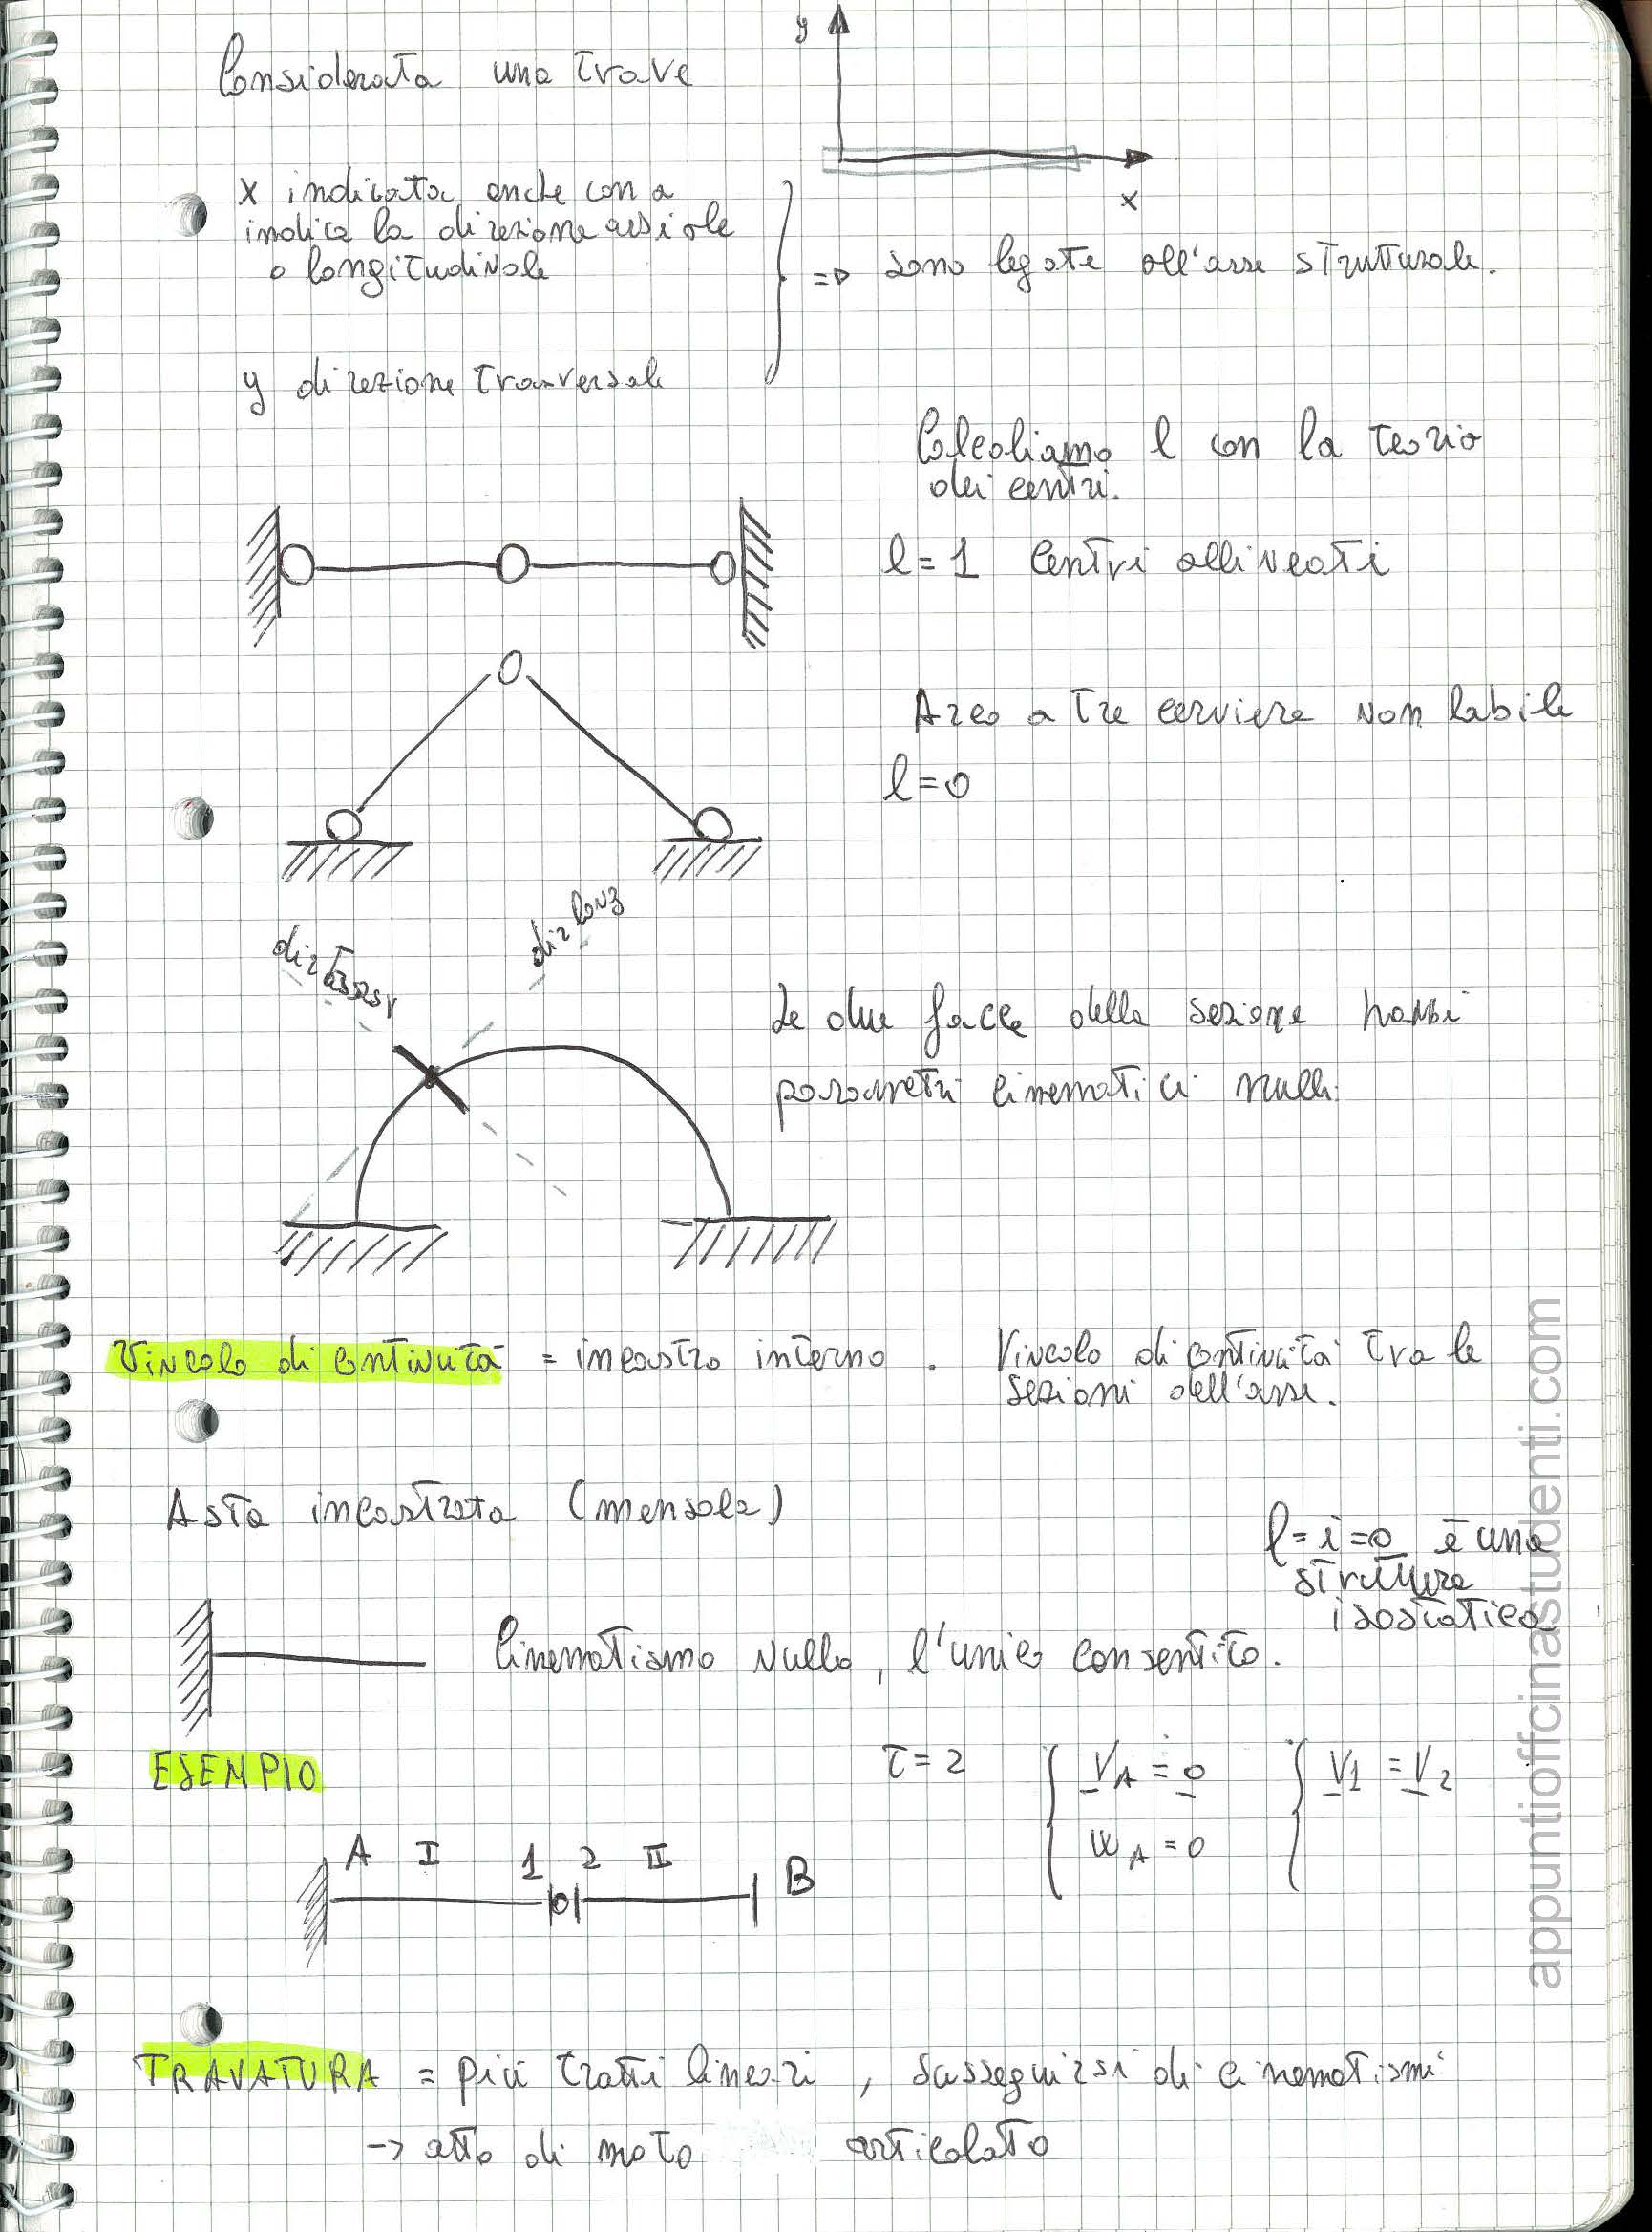 y
Considerata una trave
x
x indicata anche con a
indica la direzione assiale
o longitudinale
=> sono legate all'asse strutturale.
y direzione trasversale
Calcoliamo l con la teoria
dei centri.
l=1 Centri allineati
Arco a tre cerniere non labile
l=0
dir long
dir trasv
Le due facce della sezione hanno
parametri cinematici nulli
Vincolo di continuità = incastro interno. Vincolo di continuità tra le
sezioni dell'asse.
Asta incastrata (mensola)
l=i=0 è una
struttura
isostatica
Cinematismo nullo, l'unico consentito.
ESEMPIO
τ=2
V_A = 0
V1 = V2
w_A = 0
A I 1 2 II B
TRAVATURA = più tratti lineari, susseguirsi di cinematismi
-> atto di moto articolato
appuntioffcinastudenti.com